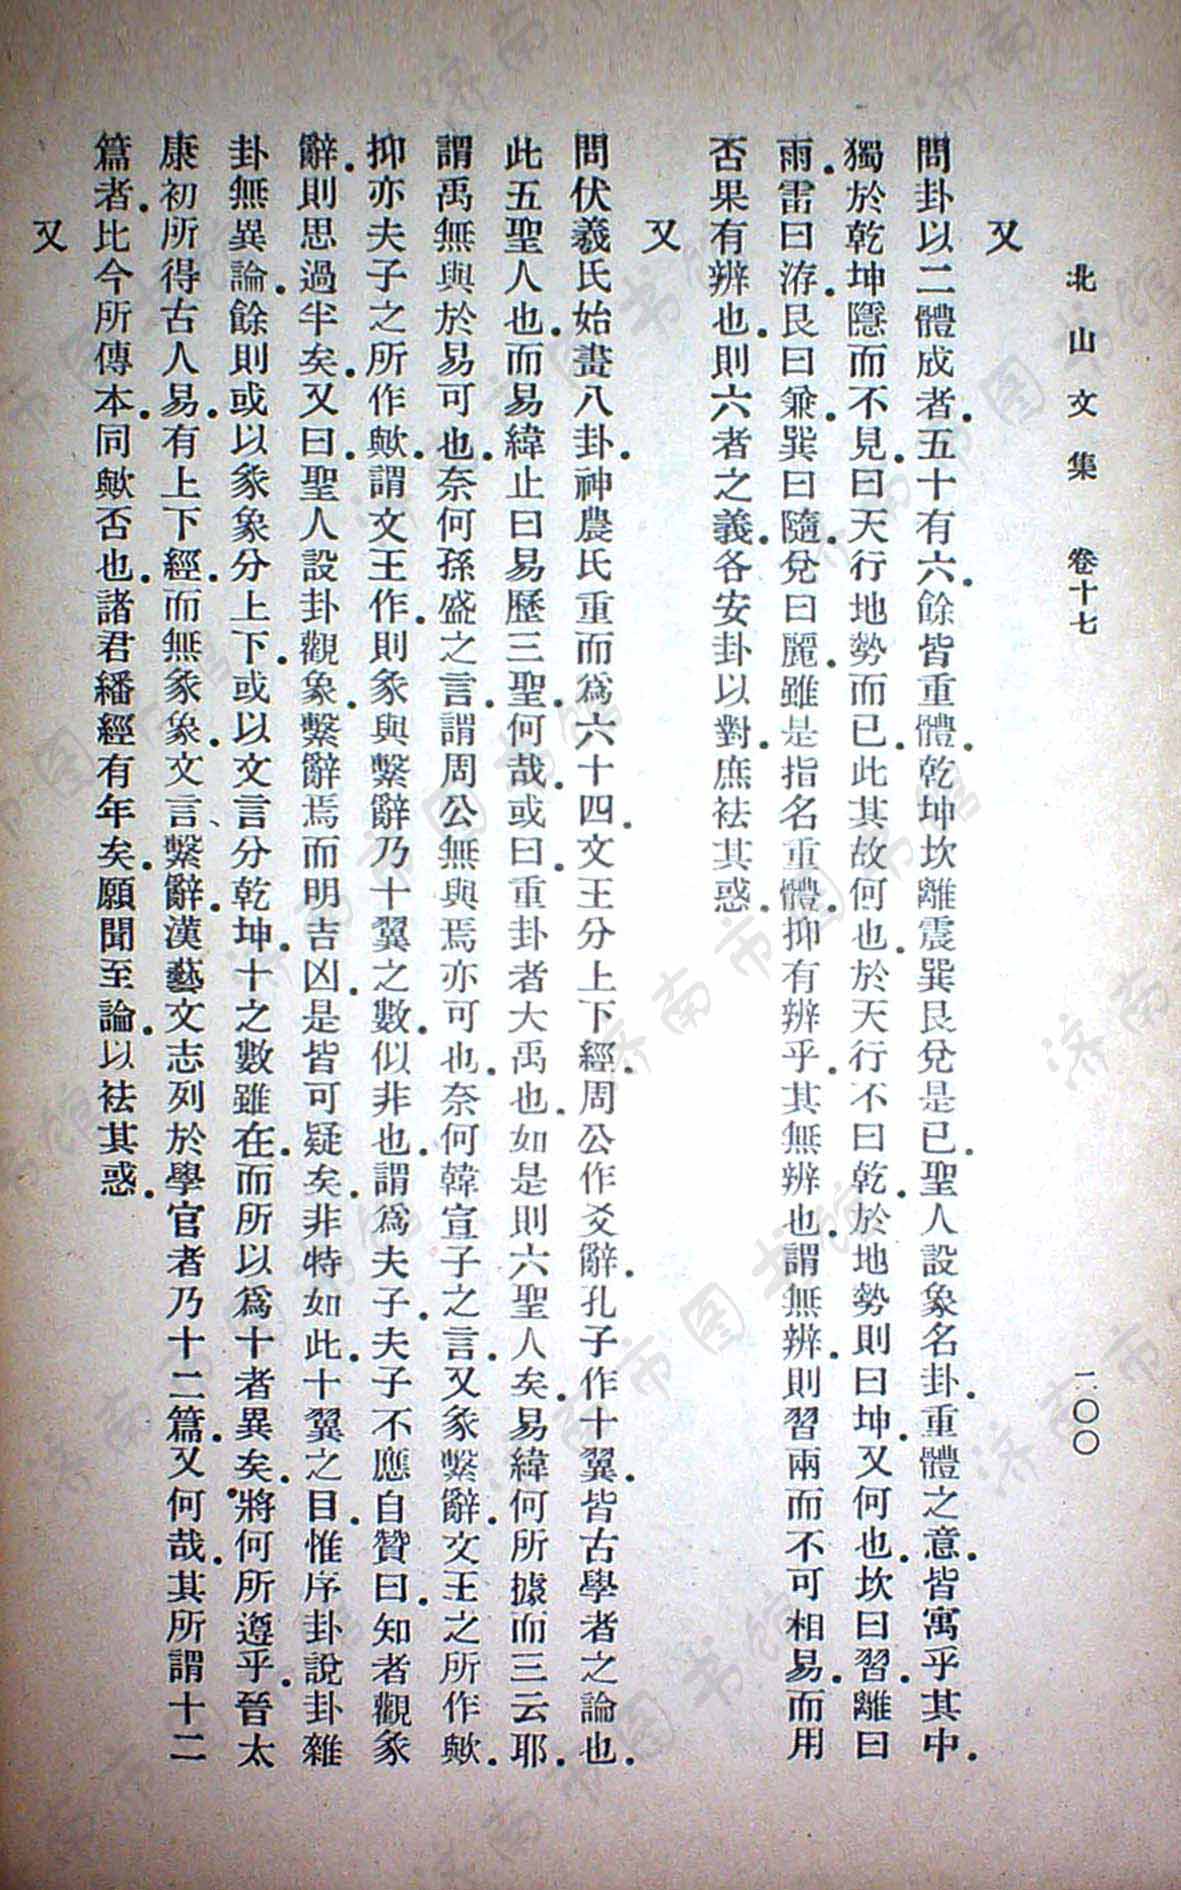 北山文集 卷十七 一〇〇
又
問卦以二體成者.五十有六.餘皆重體.乾坤坎離震巽艮兌是已.聖人設象名卦.重體之意.皆寓乎其中.
獨於乾坤隱而不見.曰天行地勢而已.此其故何也.於天行不曰乾.於地勢則曰坤.又何也.坎曰習.離曰
兩.雷曰洊.艮曰兼.巽曰隨.兌曰麗.雖是指名重體.抑有辨乎.其無辨也.謂無辨.則習兩而不可相易.而用
否果有辨也.則六者之義.各安卦以對.庶祛其惑.
又
問伏羲氏始畫八卦.神農氏重而爲六十四.文王分上下經.周公作爻辭.孔子作十翼.皆古學者之論也.
此五聖人也.而易緯止曰易歷三聖.何哉.或曰.重卦者大禹也.如是則六聖人矣.易緯何所據而三云耶.
謂禹無與於易可也.奈何孫盛之言.謂周公無與焉亦可也.奈何韓宣子之言.又彖繫辭.文王之所作歟.
抑亦夫子之所作歟.謂文王作.則彖與繫辭乃十翼之數.似非也.謂爲夫子.夫子不應自贊曰.知者觀彖
辭.則思過半矣.又曰.聖人設卦觀象.繫辭焉而明吉凶.是皆可疑矣.非特如此.十翼之目.惟序卦說卦雜
卦無異論.餘則或以彖象分上下.或以文言分乾坤.十之數雖在.而所以爲十者異矣.將何所遵乎.晉太
康初所得古人易.有上下經.而無彖象.文言、繫辭.漢藝文志列於學官者乃十二篇.又何哉.其所謂十二
篇者.比今所傳本.同歟否也.諸君繙經有年矣.願聞至論.以祛其惑.
又